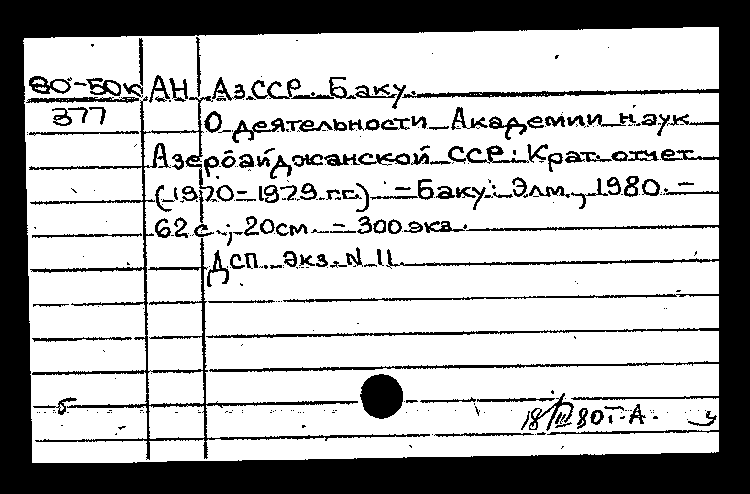 80-50к АН АзССР. Баку.
377 О деятельности Академии наук
Азербайджанской ССР: Крат. отчет
(1970-1979 г.г.) - Баку: Элм, 1980. -
62 с.; 20см. - 300 экз.
ДСП. Экз. N 11.
б
80г. А.